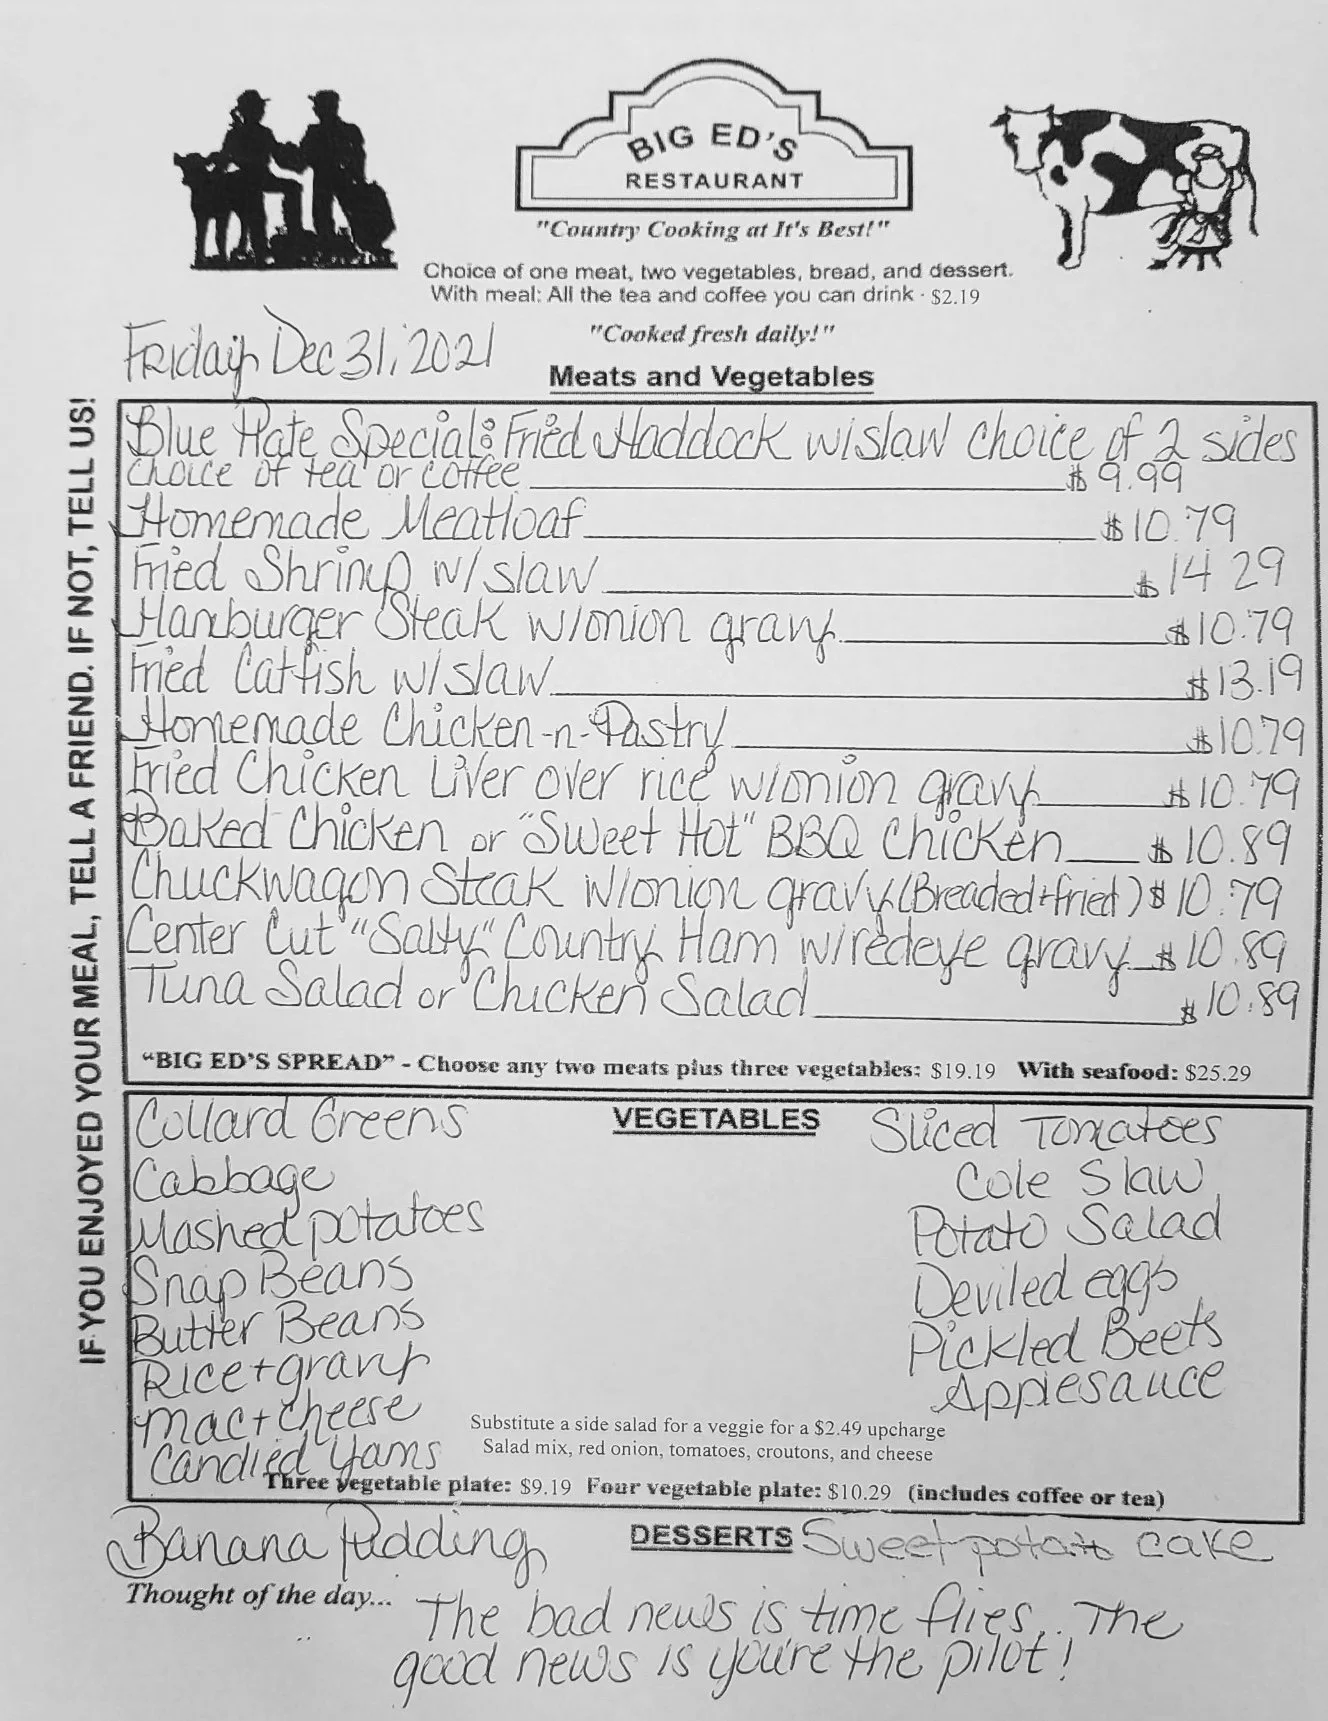 BIG ED'S
RESTAURANT
"Country Cooking at It's Best!"
Choice of one meat, two vegetables, bread, and dessert.
With meal: All the tea and coffee you can drink · $2.19
"Cooked fresh daily!"
Friday Dec 31, 2021
Meats and Vegetables
IF YOU ENJOYED YOUR MEAL, TELL A FRIEND. IF NOT, TELL US!
Blue Plate Special: Fried Haddock w/slaw choice of 2 sides
choice of tea or coffee $9.99
Homemade Meatloaf $10.79
Fried Shrimp w/slaw $14.29
Hamburger Steak w/onion gravy $10.79
Fried Catfish w/slaw $13.19
Homemade Chicken-n-Pastry $10.79
Fried Chicken Liver over rice w/onion gravy $10.79
Baked Chicken or "Sweet Hot" BBQ Chicken $10.89
Chuckwagon Steak w/onion gravy (Breaded+fried) $10.79
Center Cut "Salty" Country Ham w/redeye gravy $10.89
Tuna Salad or Chicken Salad $10.89
"BIG ED'S SPREAD" - Choose any two meats plus three vegetables: $19.19 With seafood: $25.29
VEGETABLES
Collard Greens
Cabbage
Mashed potatoes
Snap Beans
Butter Beans
Rice+gravy
Mac+cheese
Candied Yams
Sliced Tomatoes
Cole Slaw
Potato Salad
Deviled eggs
Pickled Beets
Applesauce
Substitute a side salad for a veggie for a $2.49 upcharge
Salad mix, red onion, tomatoes, croutons, and cheese
Three vegetable plate: $9.19 Four vegetable plate: $10.29 (includes coffee or tea)
DESSERTS
Banana Pudding
Sweet potato cake
Thought of the day...
The bad news is time flies... The
good news is you're the pilot!